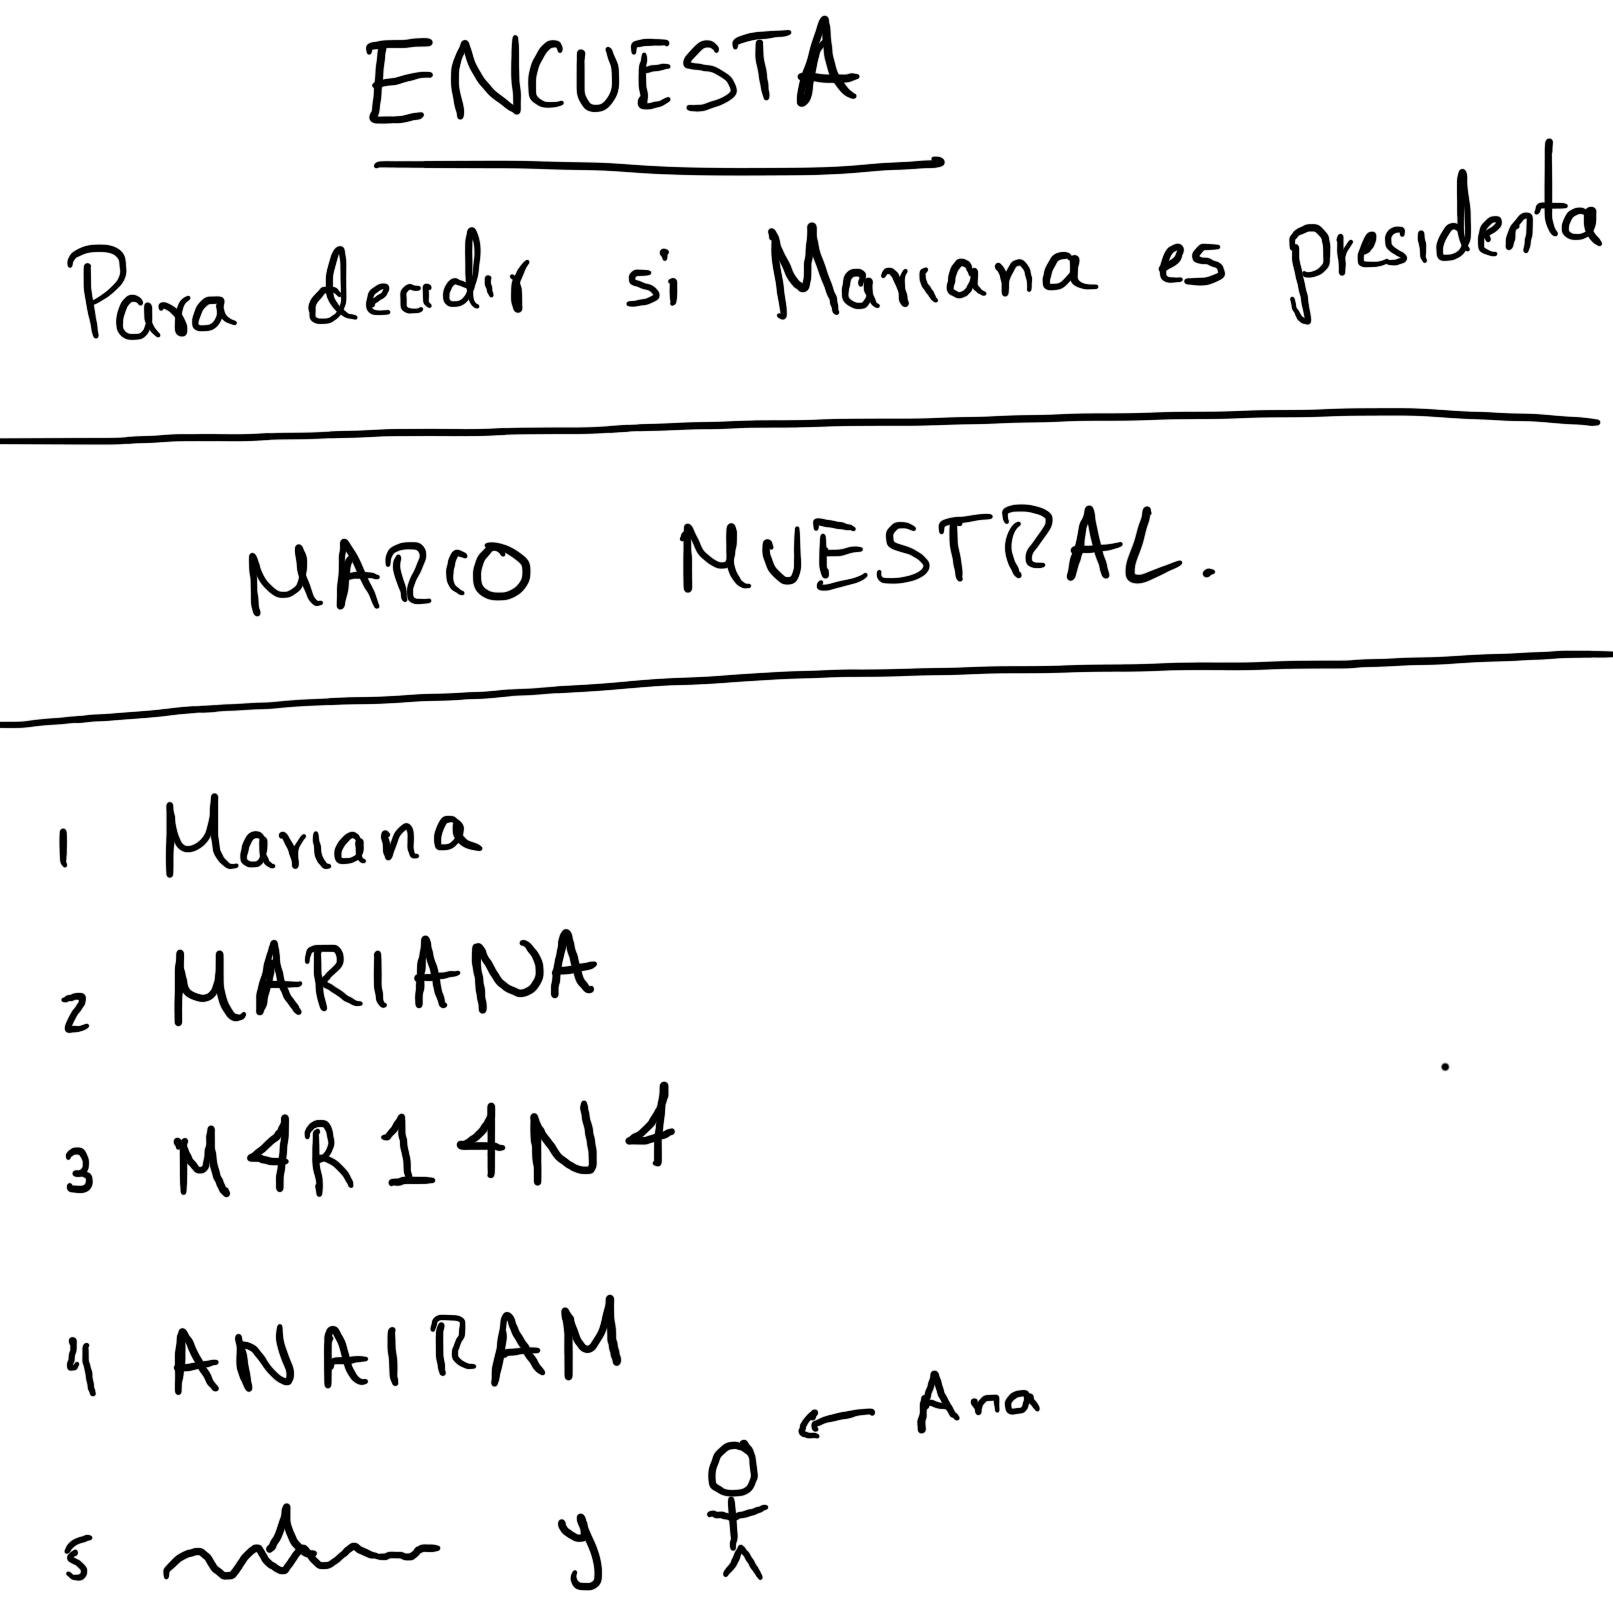 ENCUESTA
Para decidir si Mariana es presidenta
MARCO MUESTRAL.
1 Mariana
2 MARIANA
3 M4R14N4
4 ANAIRAM
← Ana
5 y